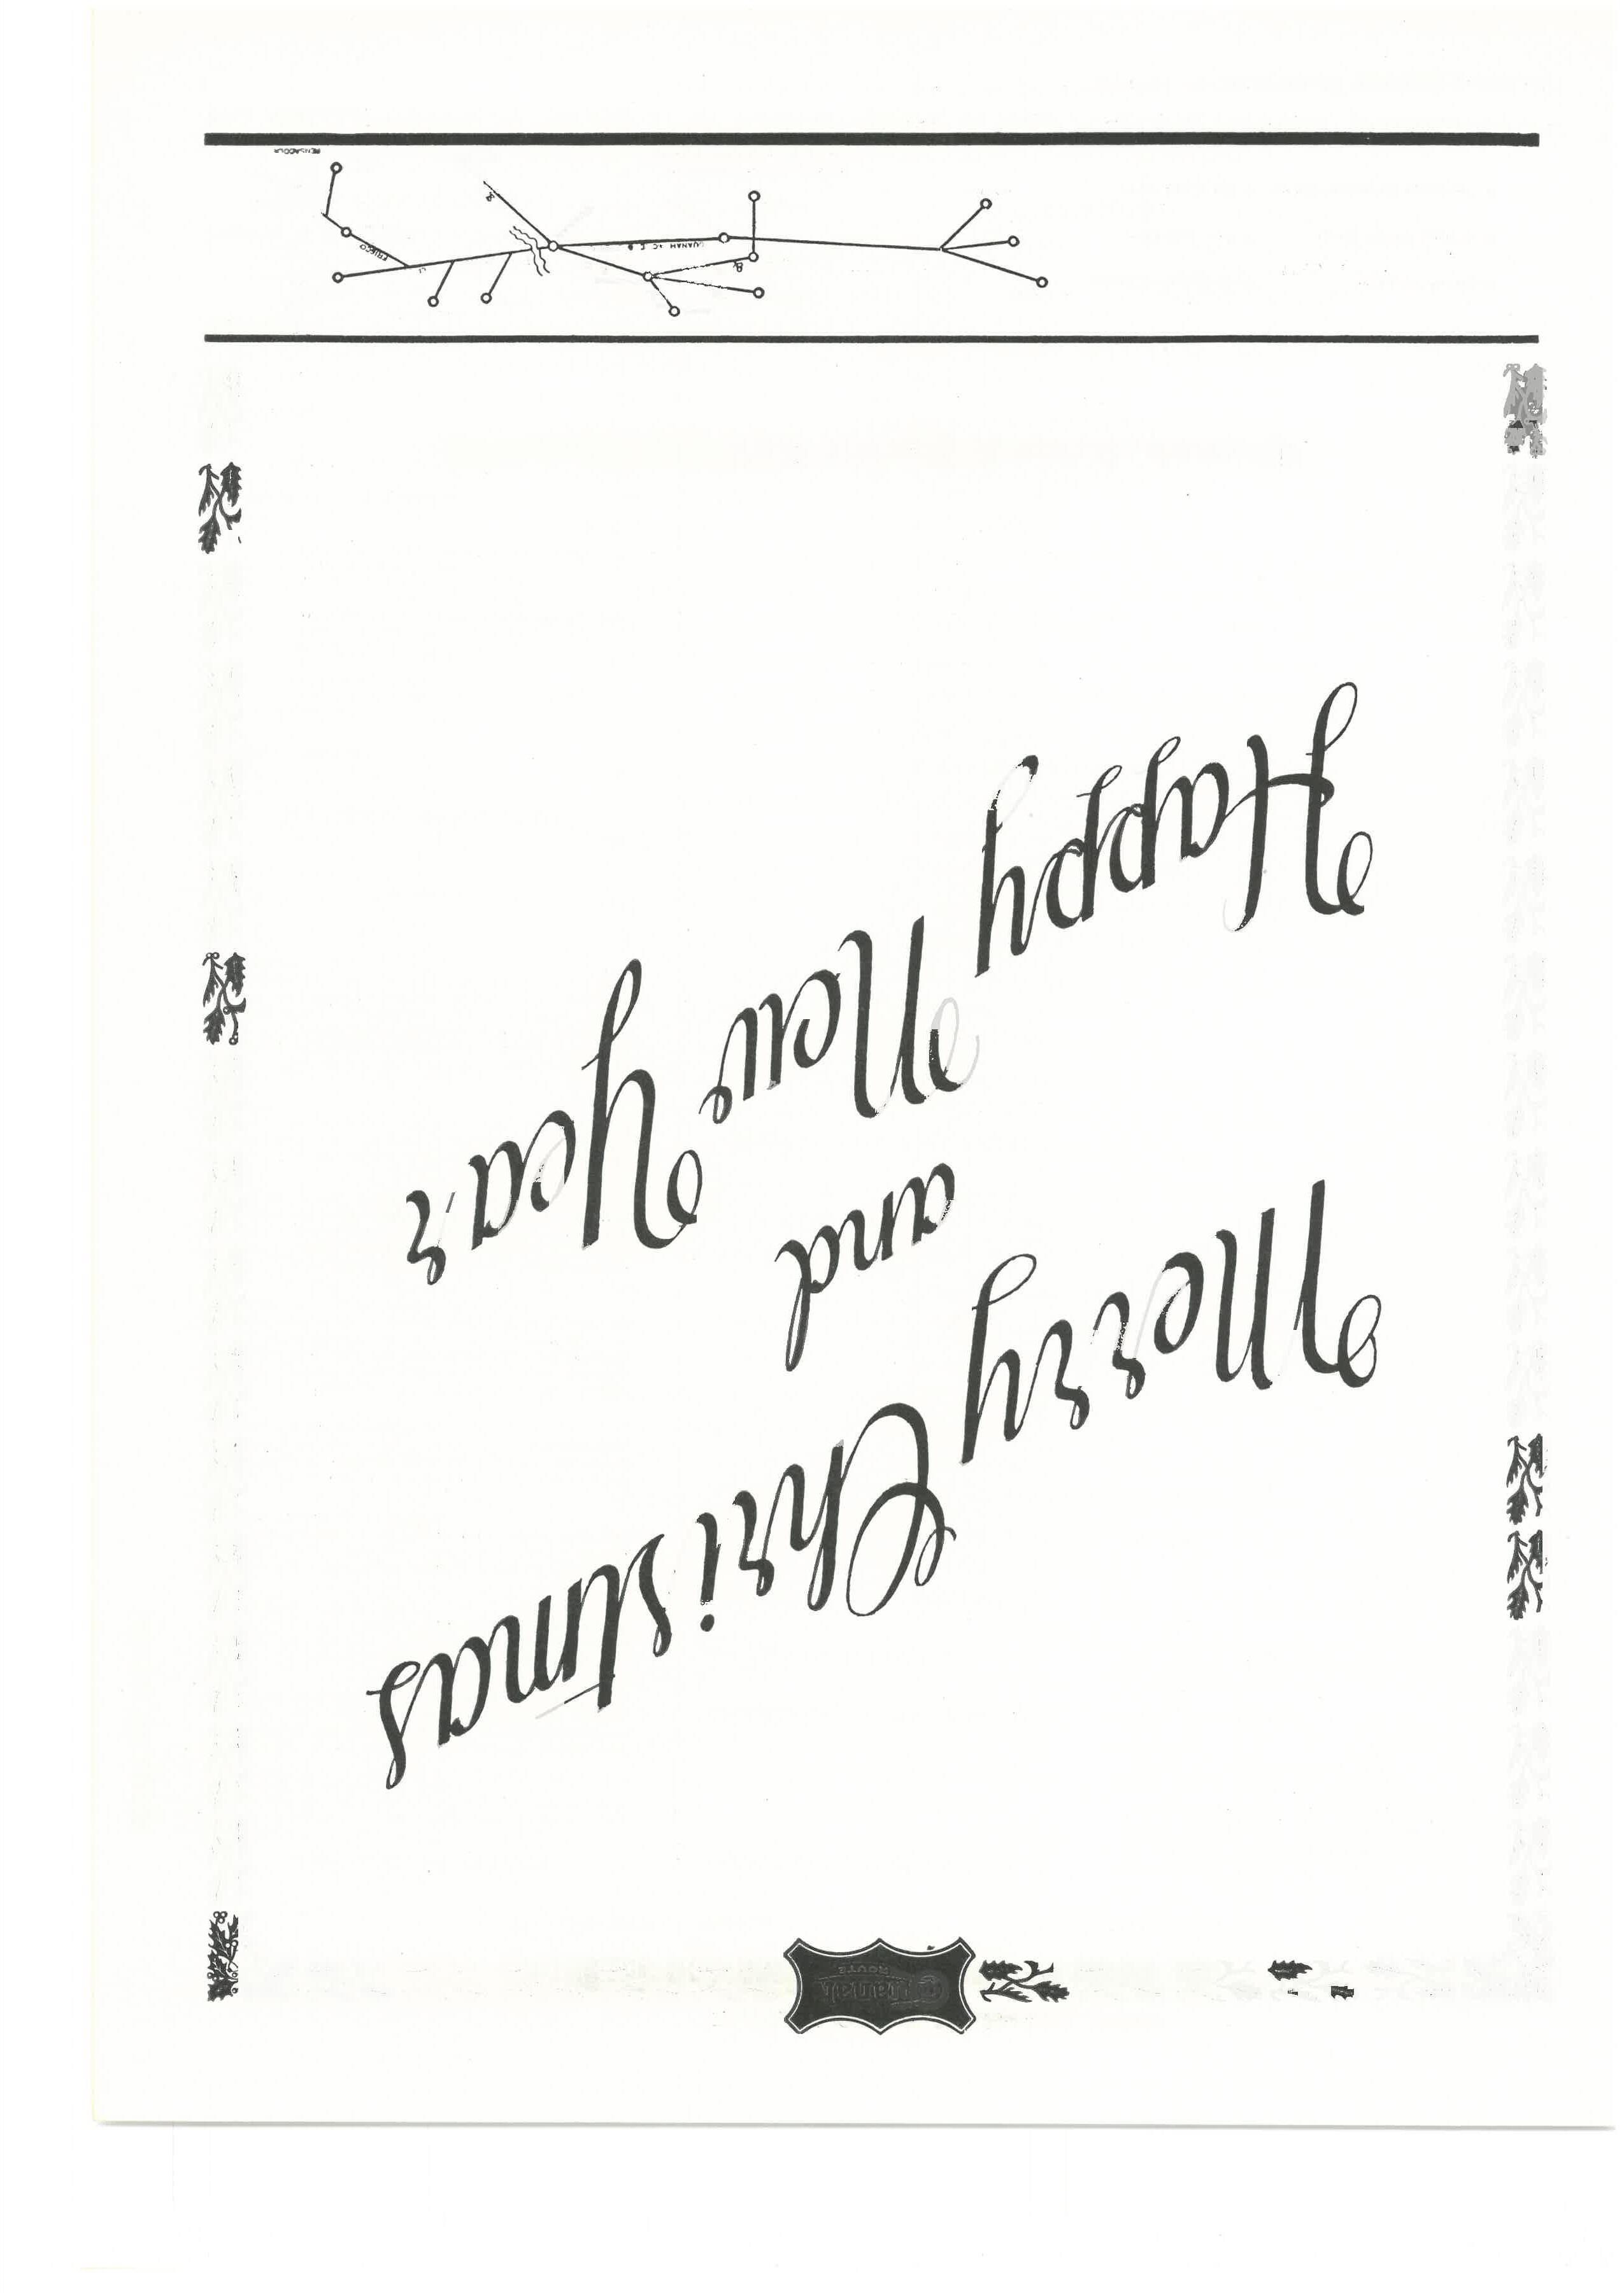 Quanah
ROUTE
Merry
Christmas
and
Happy
New
Year
QUANAH
FRISCO
PENSACOLA